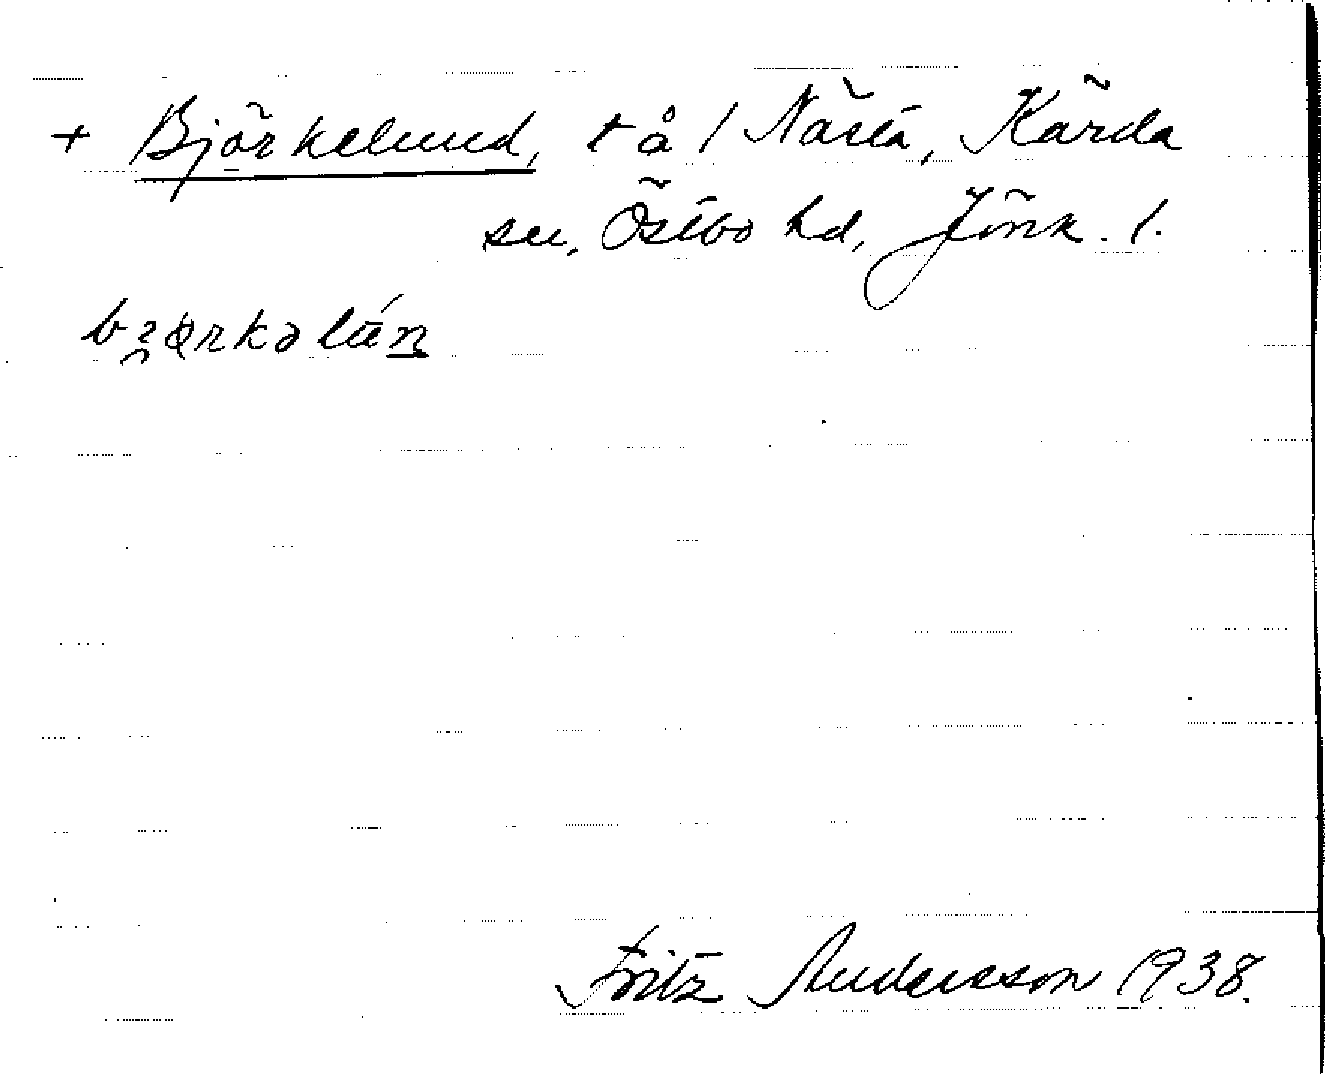 + Björkelund, t å 1 Nästa, Kärda
sn, Östbo hd, Jönk. l.
Fritz Andersson 1938.